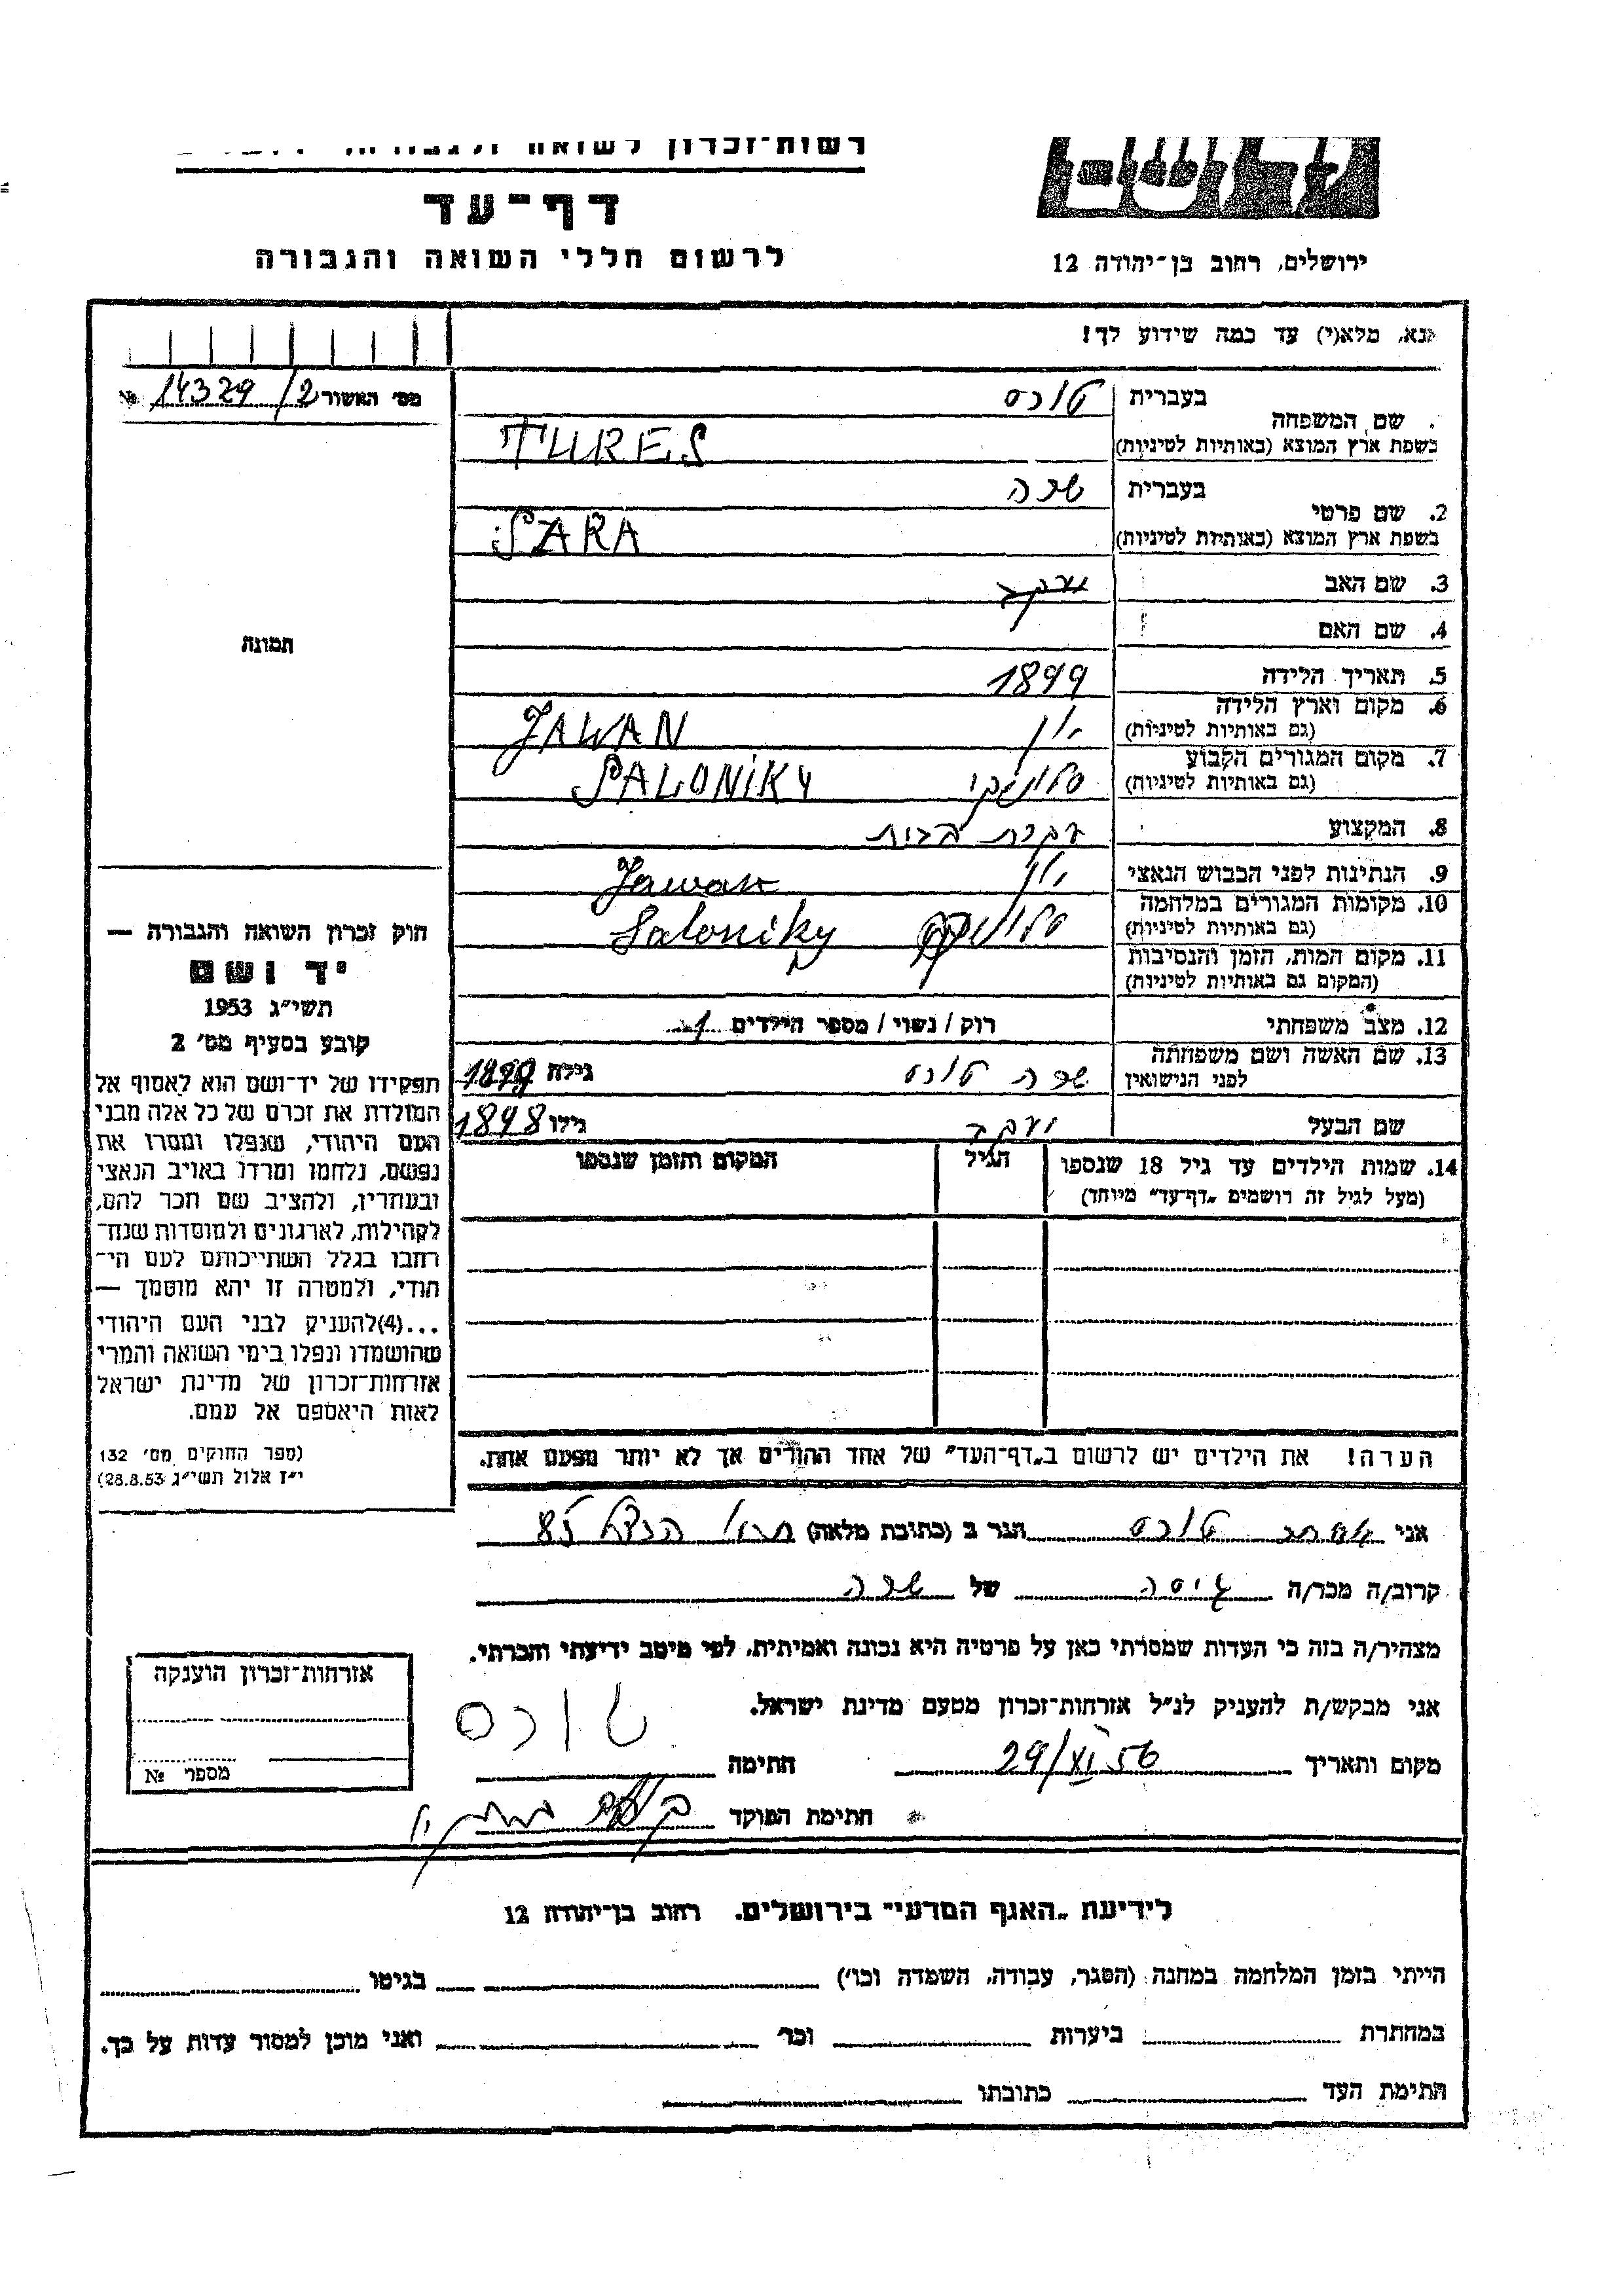 רשות־זכרון לשואה
דף־עד
לרשום חללי השואה והגבורה
ירושלים, רחוב בן־יהודה 12
נא, מלא(י) עד כמה שידוע לך!
מס׳ האשור 14329/2 №
בעברית טורס
שם המשפחה
בשפת ארץ המוצא (באותיות לטיניות) TURES
בעברית שרה
2. שם פרטי
בשפת ארץ המוצא (באותיות לטיניות) SARA
3. שם האב יעקב
4. שם האם
5. תאריך הלידה 1899
6. מקום וארץ הלידה
(גם באותיות לטיניות) יון JAWAN
7. מקום המגורים הקבוע
(גם באותיות לטיניות) סלוניקי SALONIKY
8. המקצוע עקרת הבית
9. הנתינות לפני הכבוש הנאצי יון Jawan
10. מקומות המגורים במלחמה
(גם באותיות לטיניות) סלוניקי Saloniky
11. מקום המות, הזמן והנסיבות
(המקום גם באותיות לטיניות)
12. מצב משפחתי רוק / נשוי / מספר הילדים 1
13. שם האשה ושם משפחתה
לפני הנישואין שרה טורס גילה 1899
שם הבעל יעקב גילו 1898
14. שמות הילדים עד גיל 18 שנספו הגיל המקום והזמן שנספו
(מעל לגיל זה רושמים „דף־עד״ מיוחד)
הערה! את הילדים יש לרשום ב„דף־העד״ של אחד ההורים אך לא יותר מפעם אחת.
תמונה
חוק זכרון השואה והגבורה —
יד ושם
תשי״ג 1953
קובע בסעיף מס׳ 2
תפקידו של יד־ושם הוא לאסוף אל
המולדת את זכרם של כל אלה מבני
העם היהודי, שנפלו ומסרו את
נפשם, נלחמו ומרדו באויב הנאצי
ובעוזריו, ולהציב שם וזכר להם,
לקהילות, לארגונים ולמוסדות שנח־
רבו בגלל השתייכותם לעם הי־
הודי, ולמטרה זו יהא מוסמך —
...(4) להעניק לבני העם היהודי
שהושמדו ונפלו בימי השואה והמרי
אזרחות־זכרון של מדינת ישראל
לאות היאספם אל עמם.
(ספר החוקים מס׳ 132
י״ז אלול תשי״ג 28.8.53)
אני טורס הגר ב (כתובת מלאה) 85
קרוב/ה מכר/ה גיסה של שרה
מצהיר/ה בזה כי העדות שמסרתי כאן על פרטיה היא נכונה ואמיתית, לפי מיטב ידיעתי והכרתי.
אני מבקש/ת להעניק לנ״ל אזרחות־זכרון מטעם מדינת ישראל.
מקום ותאריך 29/XI 56 חתימה טורס
חתימת הפוקד
אזרחות־זכרון הוענקה
מספר №
לידיעת „האגף המדעי״ בירושלים. רחוב בן־יהודה 12
הייתי בזמן המלחמה במחנה (הסגר, עבודה, השמדה וכו׳) בגיטו
במחתרת ביערות וכו׳ ואני מוכן למסור עדות על כך.
חתימת העד כתובתו